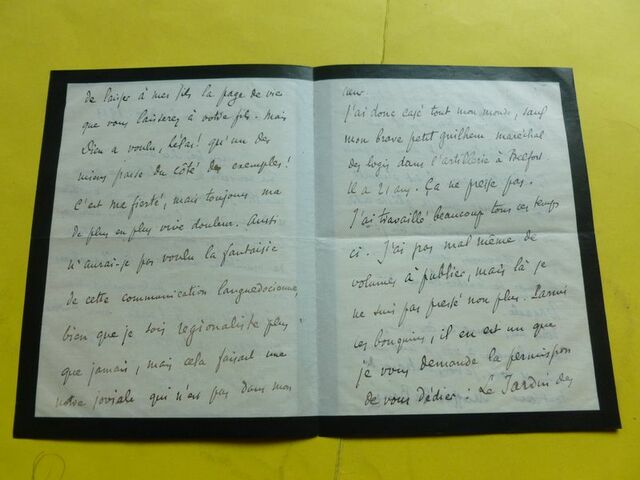 de laisser à mes fils la page de vie
que vous laisserez à votre fils. Mais
Dieu a voulu, hélas! qu'un des
miens passe du côté des exemples!
C'est ma fierté, mais toujours ma
de plus en plus vive douleur. Aussi
n'aurai-je pas voulu la fantaisie
de cette communication languedocienne,
bien que je sois regionaliste plus
que jamais, mais cela faisait une
note joviale qui n'est pas dans mon
cœur.
J'ai donc casé tout mon monde, sauf
mon brave petit guilhem maréchal
des logis dans l'artillerie à Belfort.
Il a 21 ans. Ça ne presse pas.
J'ai travaillé beaucoup tous ces temps
ci. J'ai pas mal même de
volumes à publier, mais là je
ne suis pas pressé non plus. Parmi
ces bouquins, il en est un que
je vous demande la permission
de vous dédier: Le Jardin des